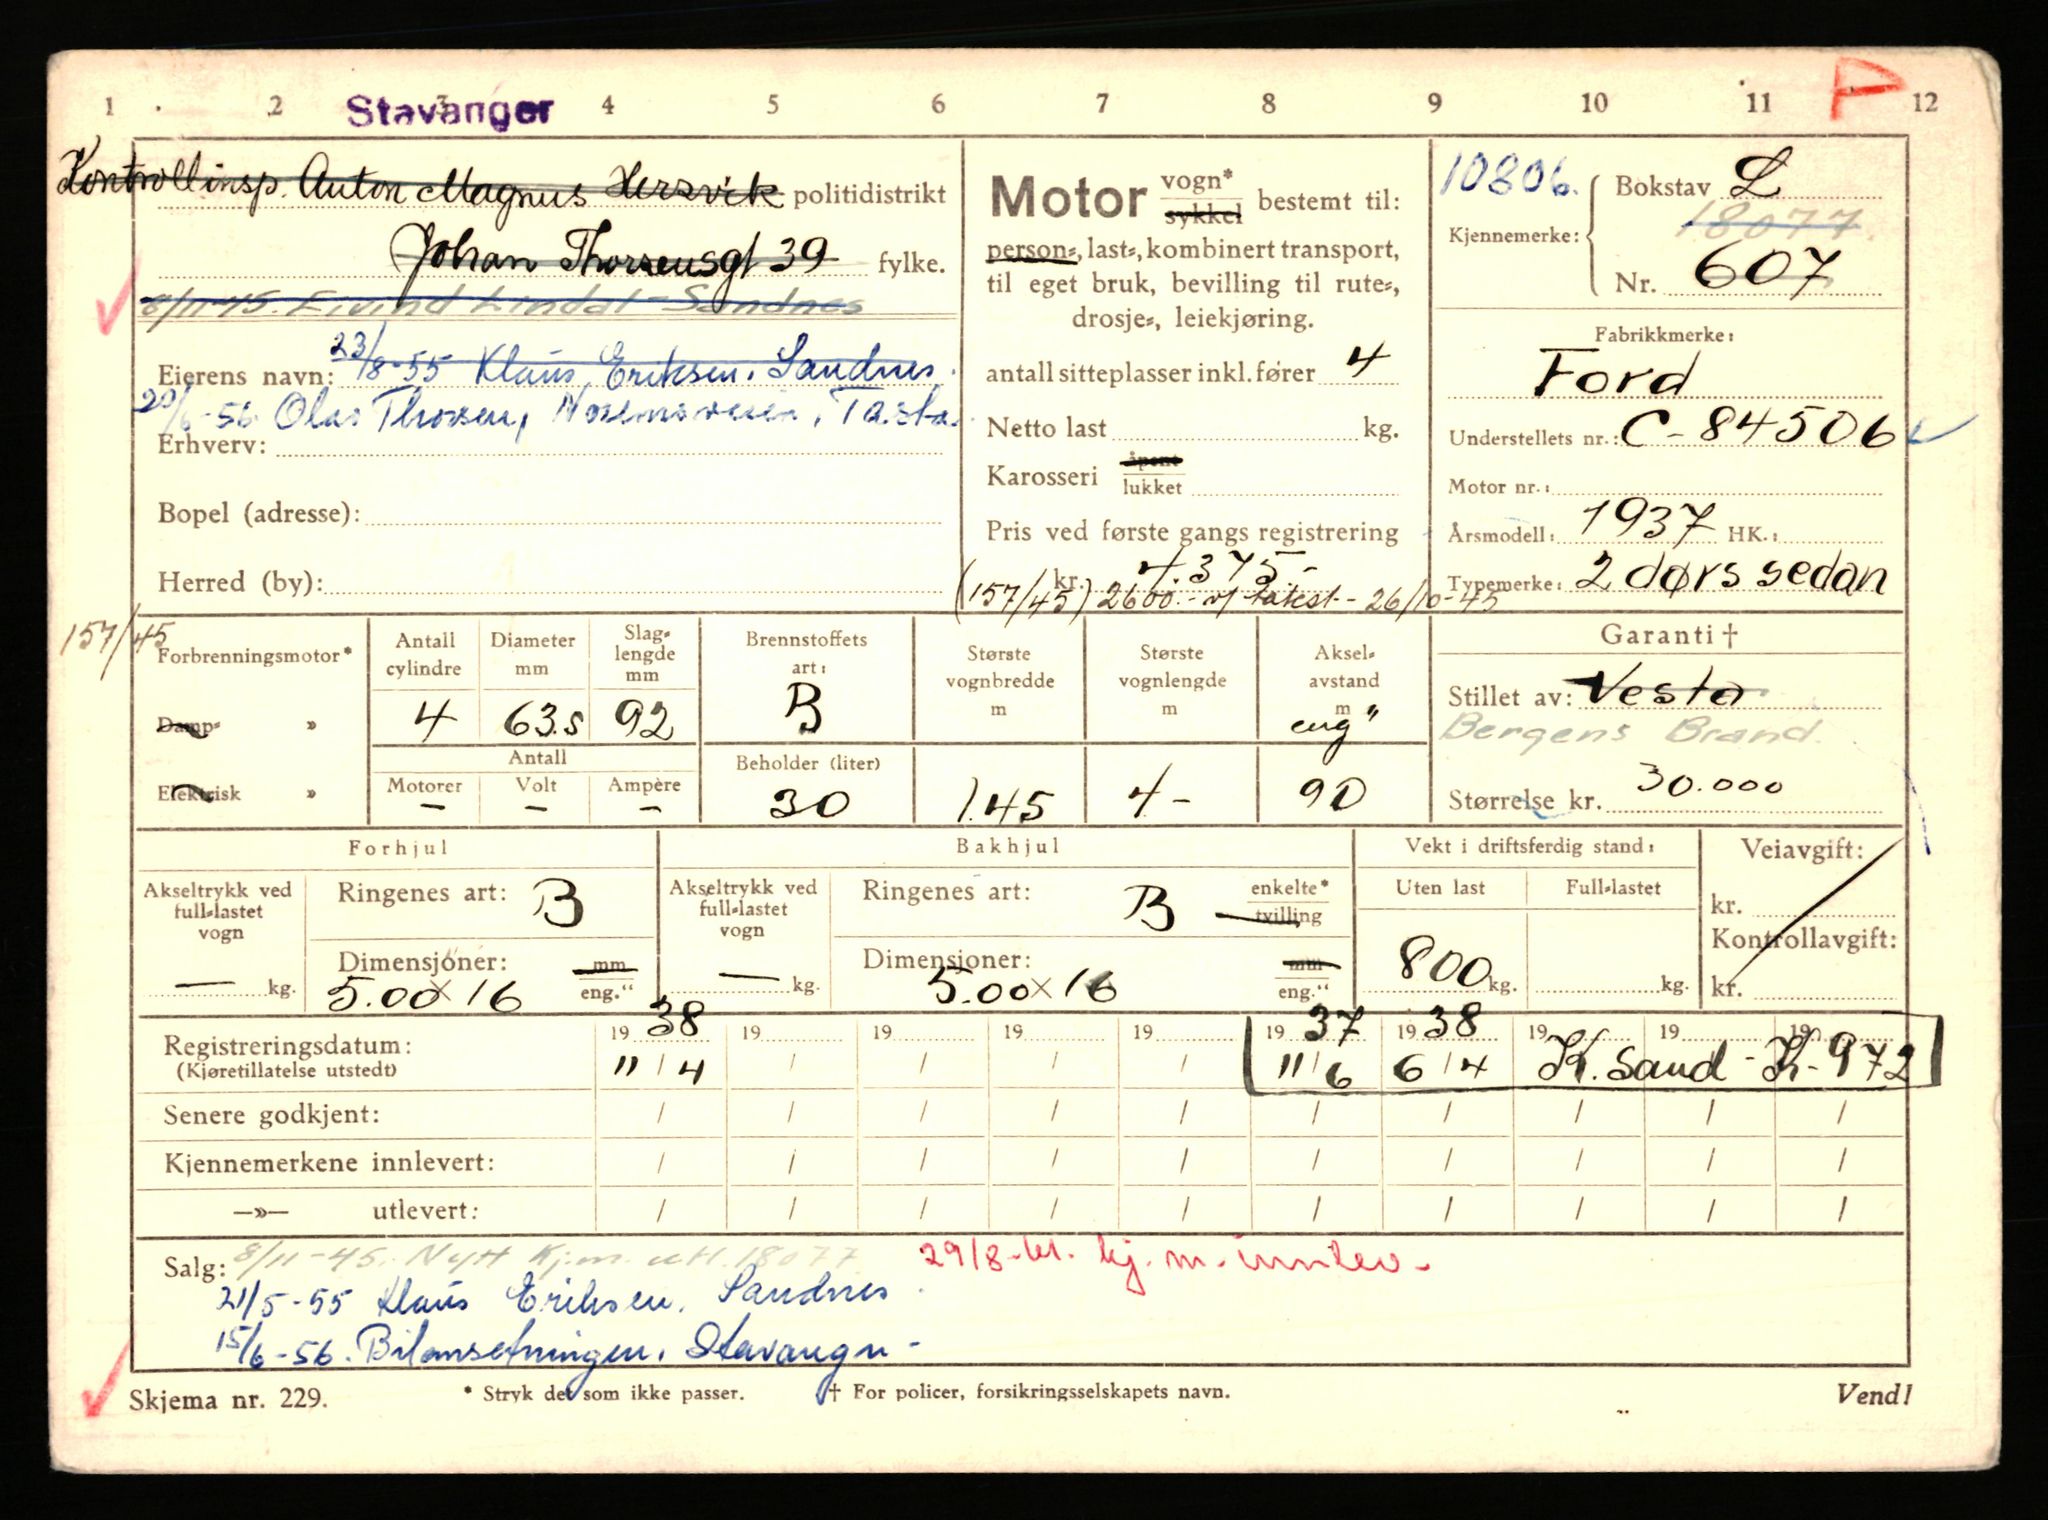 1 2 3 4 5 6 7 8 9 10 11 12
Stavanger
P
Kontrollinsp. Anton Magnus Hersvik politidistrikt
Johan Thorsensgt 39 fylke.
8/11-45. Eivind Lindal - Sandnes
Eierens navn: 23/8-55 Klaus Eriksen. Sandnes.
20/6-56 Olav Thorsen, Tasta.
Erhverv:
Bopel (adresse):
Herred (by):
Motor vogn* sykkel bestemt til:
person-, last-, kombinert transport,
til eget bruk, bevilling til rute-,
drosje-, leiekjøring.
antall sitteplasser inkl. fører 4
Netto last kg.
Karosseri åpent lukket
Pris ved første gangs registrering
kr. 4375-
(157/45) 2600.- 26/10-45
10806. Bokstav L
18077
Kjennemerke:
Nr. 607
Fabrikkmerke:
Ford
Understellets nr.: C-84506
Motor nr.:
Årsmodell: 1937 HK.:
Typemerke: 2 dørs sedan
157/45
Forbrenningsmotor*
Damp- »
Elektrisk »
Antall cylindre 4
Diameter mm 63.5
Slag-lengde mm 92
Antall
Motorer – Volt – Ampère –
Brennstoffets art: B
Beholder (liter) 30
Største vognbredde m 1.45
Største vognlengde m 4-
Aksel-avstand m eng" 90
Garanti †
Stillet av: Vesta
Bergens Brand.
Størrelse kr. 30.000
Forhjul
Akseltrykk ved full-lastet vogn — kg.
Ringenes art: B
Dimensjoner: mm
5.00 x 16 eng."
Bakhjul
Akseltrykk ved full-lastet vogn — kg.
Ringenes art: B enkelte* tvilling
Dimensjoner: mm
5.00 x 16 eng."
Vekt i driftsferdig stand:
Uten last Full-lastet
800 kg. kg.
Veiavgift:
kr.
Kontrollavgift:
kr.
Registreringsdatum: 19 38 19 19 19 19 19 37 19 38 19 19 19
(Kjøretillatelse utstedt) 11/4 / / / / 11/6 6/4 K. Sand - K-972
Senere godkjent: / / / / / / / / / /
Kjennemerkene innlevert: / / / / / / / / / /
—»— utlevert: / / / / / / / / / /
Salg: 8/11-45. Nytt Kj.m. utl. 18077. 29/8- kj. m. innlev.
21/5-55 Klaus Eriksen. Sandnes.
15/6-56. Bilomsetningen, Stavanger -
Skjema nr. 229. * Stryk det som ikke passer. † For policer, forsikringsselskapets navn. Vend!